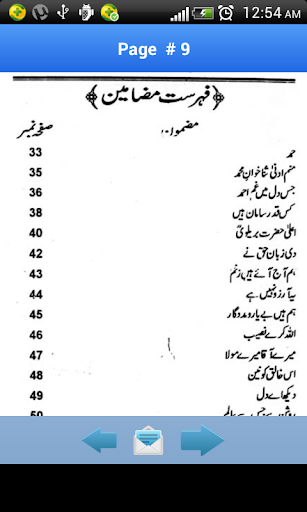 12:54 AM
Page # 9
﴿ فہرست مضامین ﴾
مضمون صفحہ نمبر
حمد 33
منم ادنیٰ ثنا خوانِ محمد 35
جس دل میں غمِ احمد 36
کس قدر سامان ہیں 38
اعلیٰ حضرت بریلوی 40
دی زبان حق نے 42
ہم آج آئے ہیں زخم 43
یہ آرزو نہیں ہے 44
ہم ہیں بے یار و مددگار 45
اللہ کرے نصیب 46
میرے آقا میرے مولا 47
اس خالق کونین 48
دیکھا اے دل 49
50